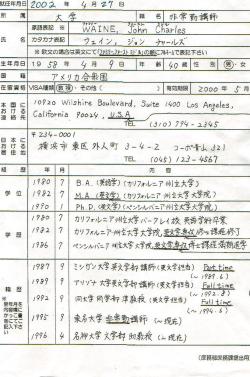 就任年月日 2002 年 4 月 27 日
所属 大学 職名 非常勤講師
氏名 原語表記 ※ WAINE, John Charles
カタカナ表記 ウェイン, ジョン チャールズ
生年月日 1958 年 4 月 9 日 年齢 40 歳 性別 男・女
国籍 アメリカ合衆国
在留資格 VISA種類 教授・その他( ) 有効期限 2000 年 5 月
本国における連絡先 10920 Wilshire Boulevard, Suite 1400 Los Angeles,
California 90024, U.S.A
TEL (310) 794-2345
日本における住所 〒234-0001
横浜市東区外人町 3-4-2 コーポ青山 321
TEL (045) 123-4567
年 月 内容
学位 1980 7 B.A. (英語学) (カリフォルニア州立大学)
1982 7 M.A. (英文学) (カリフォルニア州立大学大学院)
1990 7 Ph.D. (英文学) (ペンシルバニア州立大学大学院)
学歴 1980 7 カリフォルニア州立大学バークレイ校 英語学科卒業
1982 7 カリフォルニア州立大学大学院, 英文学専攻修士課程修了
1986 9 ペンシルバニア州立大学大学院, 英文学専攻博士課程満期退学
職歴 1987 9 ミシガン大学英文学部講師 (英文学担当) Part time (~1989.6)
1989 9 アリゾナ大学英文学部講師 (英文学担当) Full time (~1992.8)
1992 9 同大学同学部準教授 (英文学担当) Full time (~1994.6)
1995 9 東名大学非常勤講師 (~現在)
1996 4 名神大学文学部助教授 (~現在)